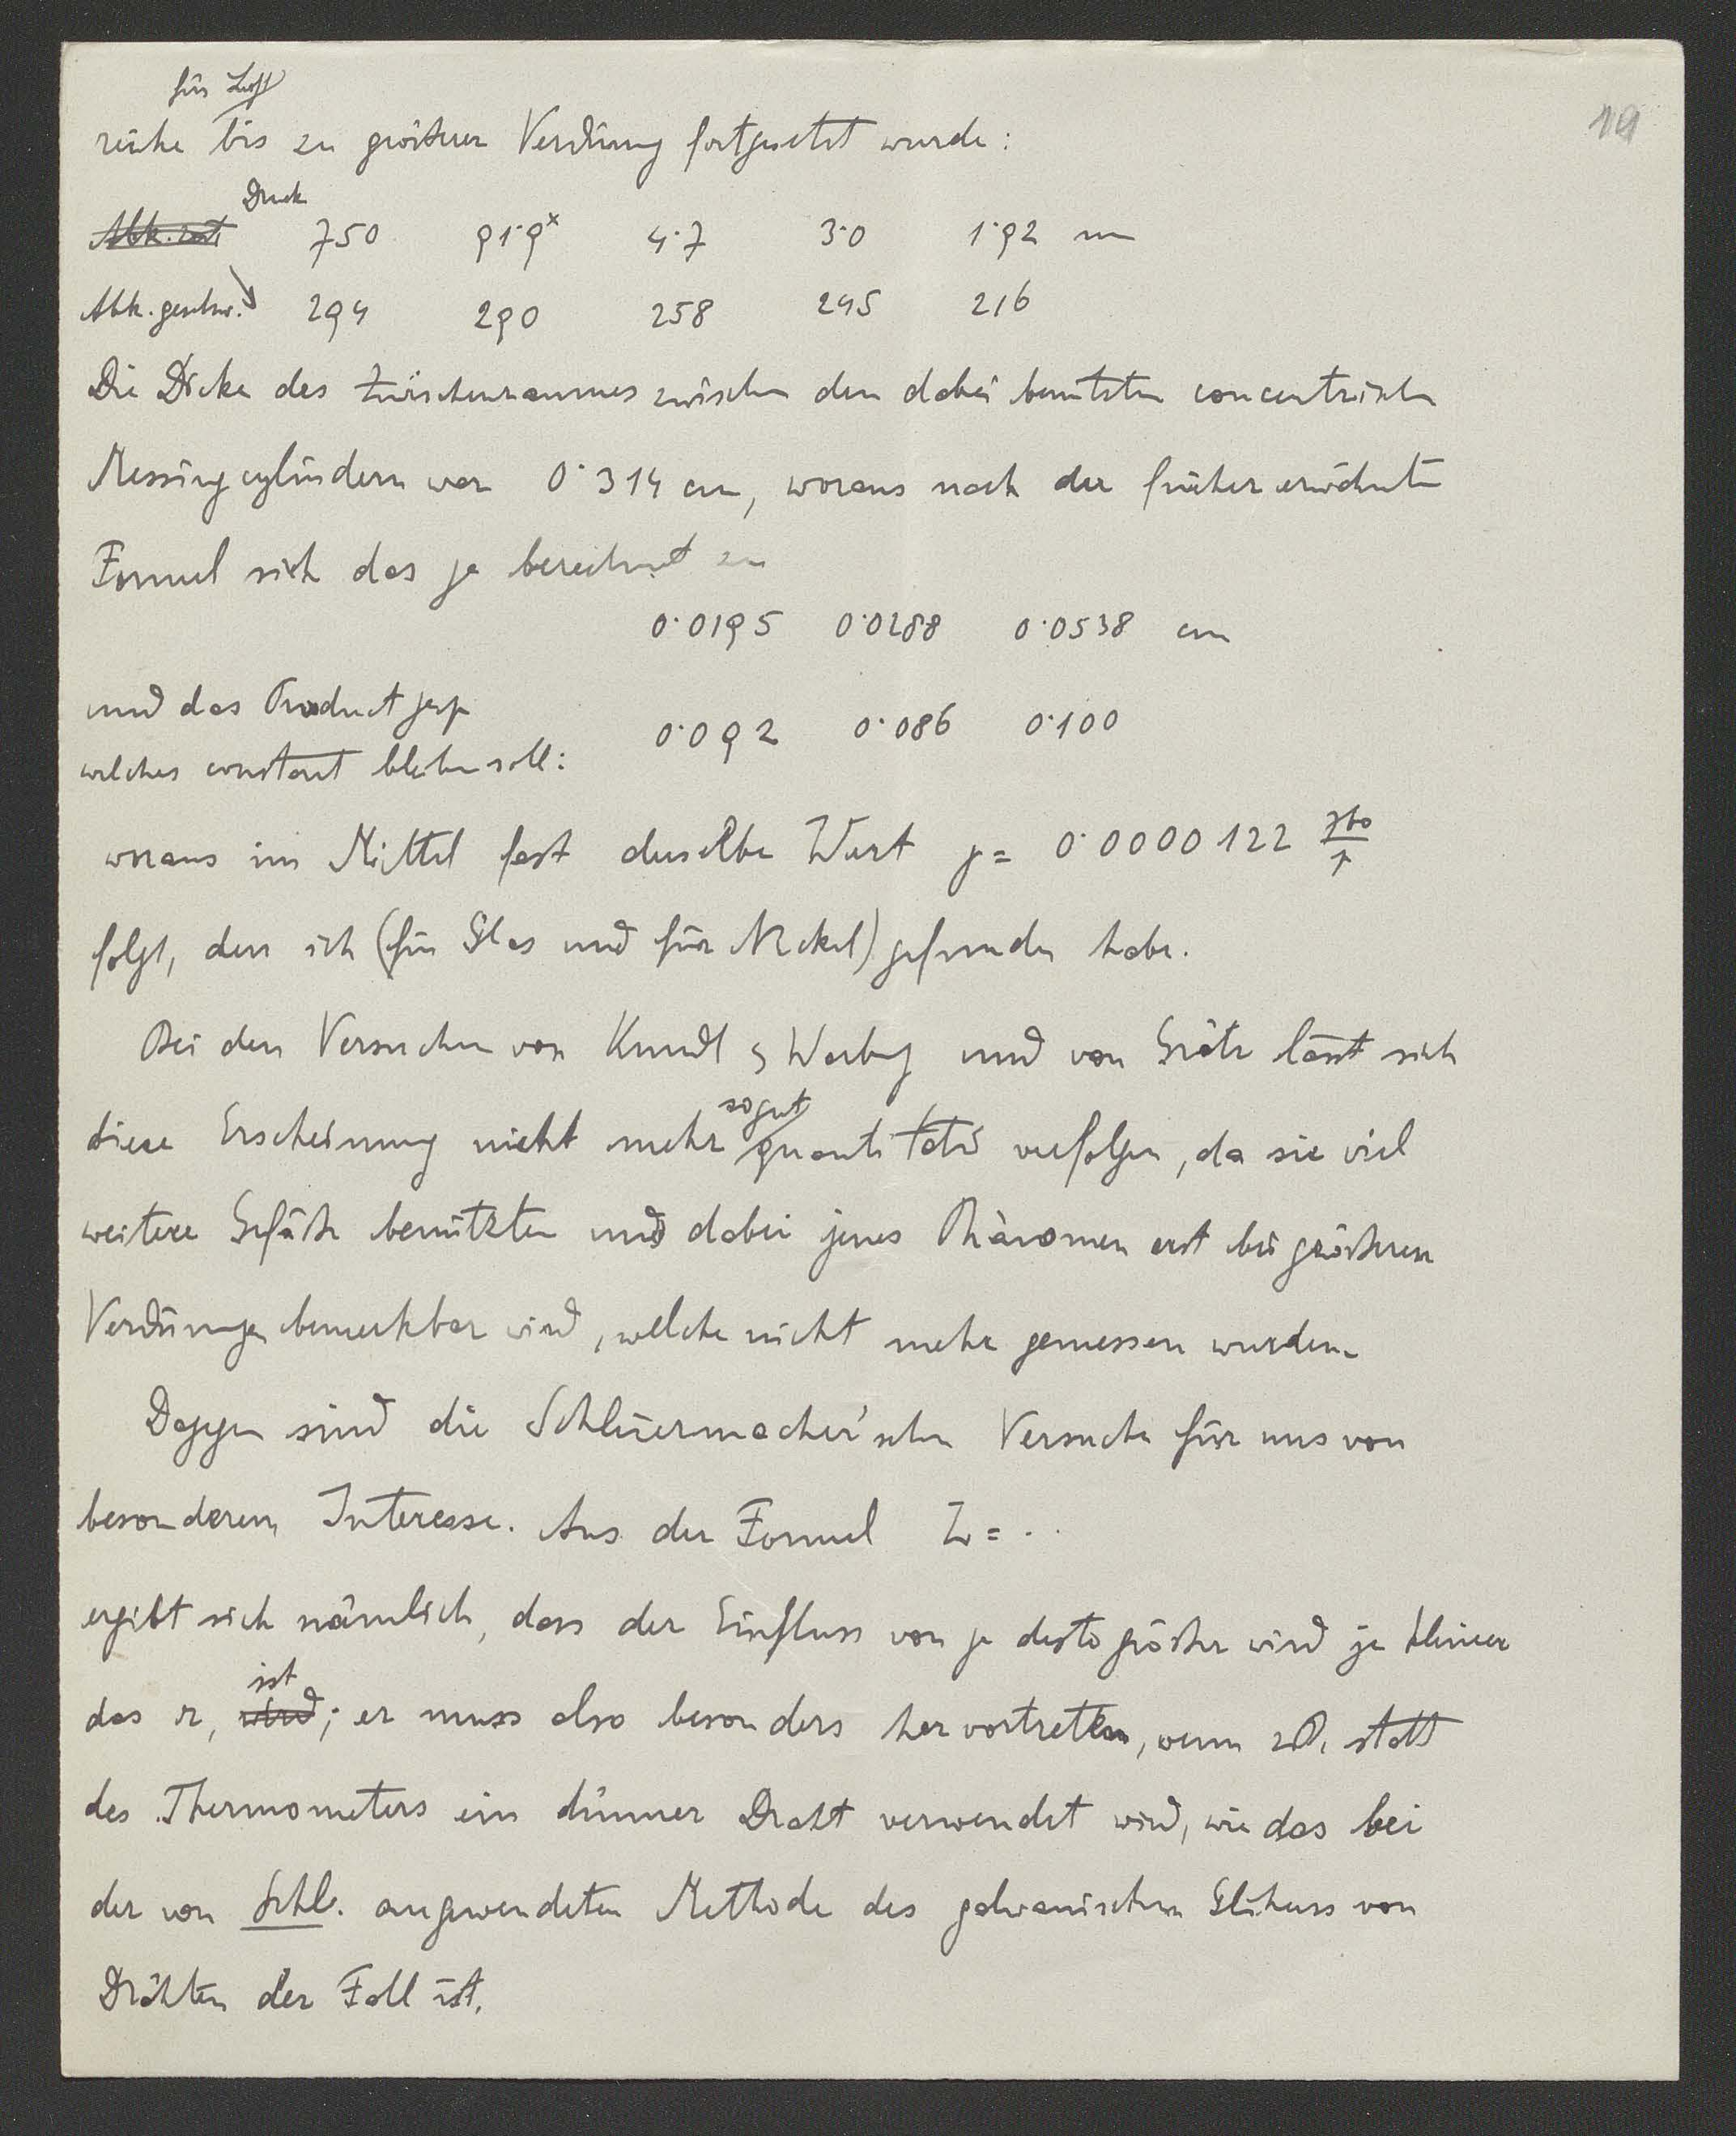 19
für Luft
reihe bis zu grösserer Verdünnung fortgesetzt wurde:
Druck
Abk. zeit 750 91·9ˣ 4·7 3·0 1·92 mm
Abk. geschw. 294 290 258 245 216
Die Dicke des Zwischenraumes zwischen den dabei benützten concentrischen
Messingcylindern war 0·314 cm, woraus nach der früher erwähnten
Formel sich das γ berechnet zu
0·0195 0·0288 0·0538 cm
und das Product γp
0·092 0·086 0·100
welches constant bleiben soll:
woraus im Mittel fast derselbe Wert γ = 0·0000122 760/p
folgt, den ich (für Glas und für Nickel) gefunden habe.
Bei den Versuchen von Kundt & Warburg und von Grätz lässt sich
sogut
diese Erscheinung nicht mehr quantitativ verfolgen, da sie viel
weitere Gefässe benützten und dabei jenes Phänomen erst bei grösseren
Verdünnungen bemerkbar wird, welche nicht mehr gemessen wurden.
Dagegen sind die Schleiermacher'schen Versuche für uns von
besonderem Interesse. Aus der Formel Z = ..
ergibt sich nämlich, dass der Einfluss von γ desto grösser wird je kleiner
ist
das r, wird; er muss also besonders hervortreten, wenn z.B. statt
des Thermometers ein dünner Draht verwendet wird, wie das bei
der von Schl. angewendeten Methode des galvanischen Glühens von
Drähten der Fall ist.